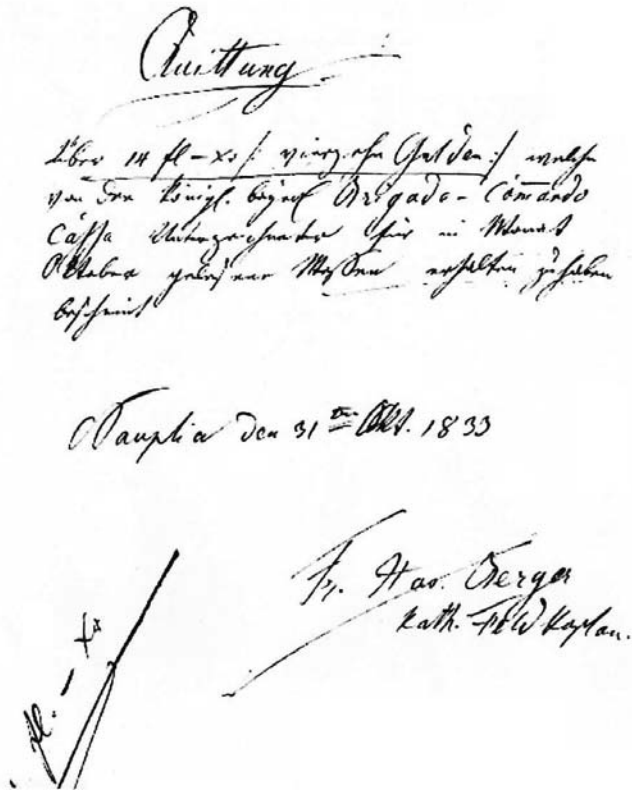 Quittung
Über 14 fl – xr /: vierzehn Gulden :/ welche
von der königl. bayer. Brigade-Com̄ando
Cassa Unterzeichneter für im Monat
Oktober gelesene Messen erhalten zu haben
bescheint
Nauplia den 31ten Okt. 1833
Fr. Berger
kath. Feld Kaplan.
fl. – xr